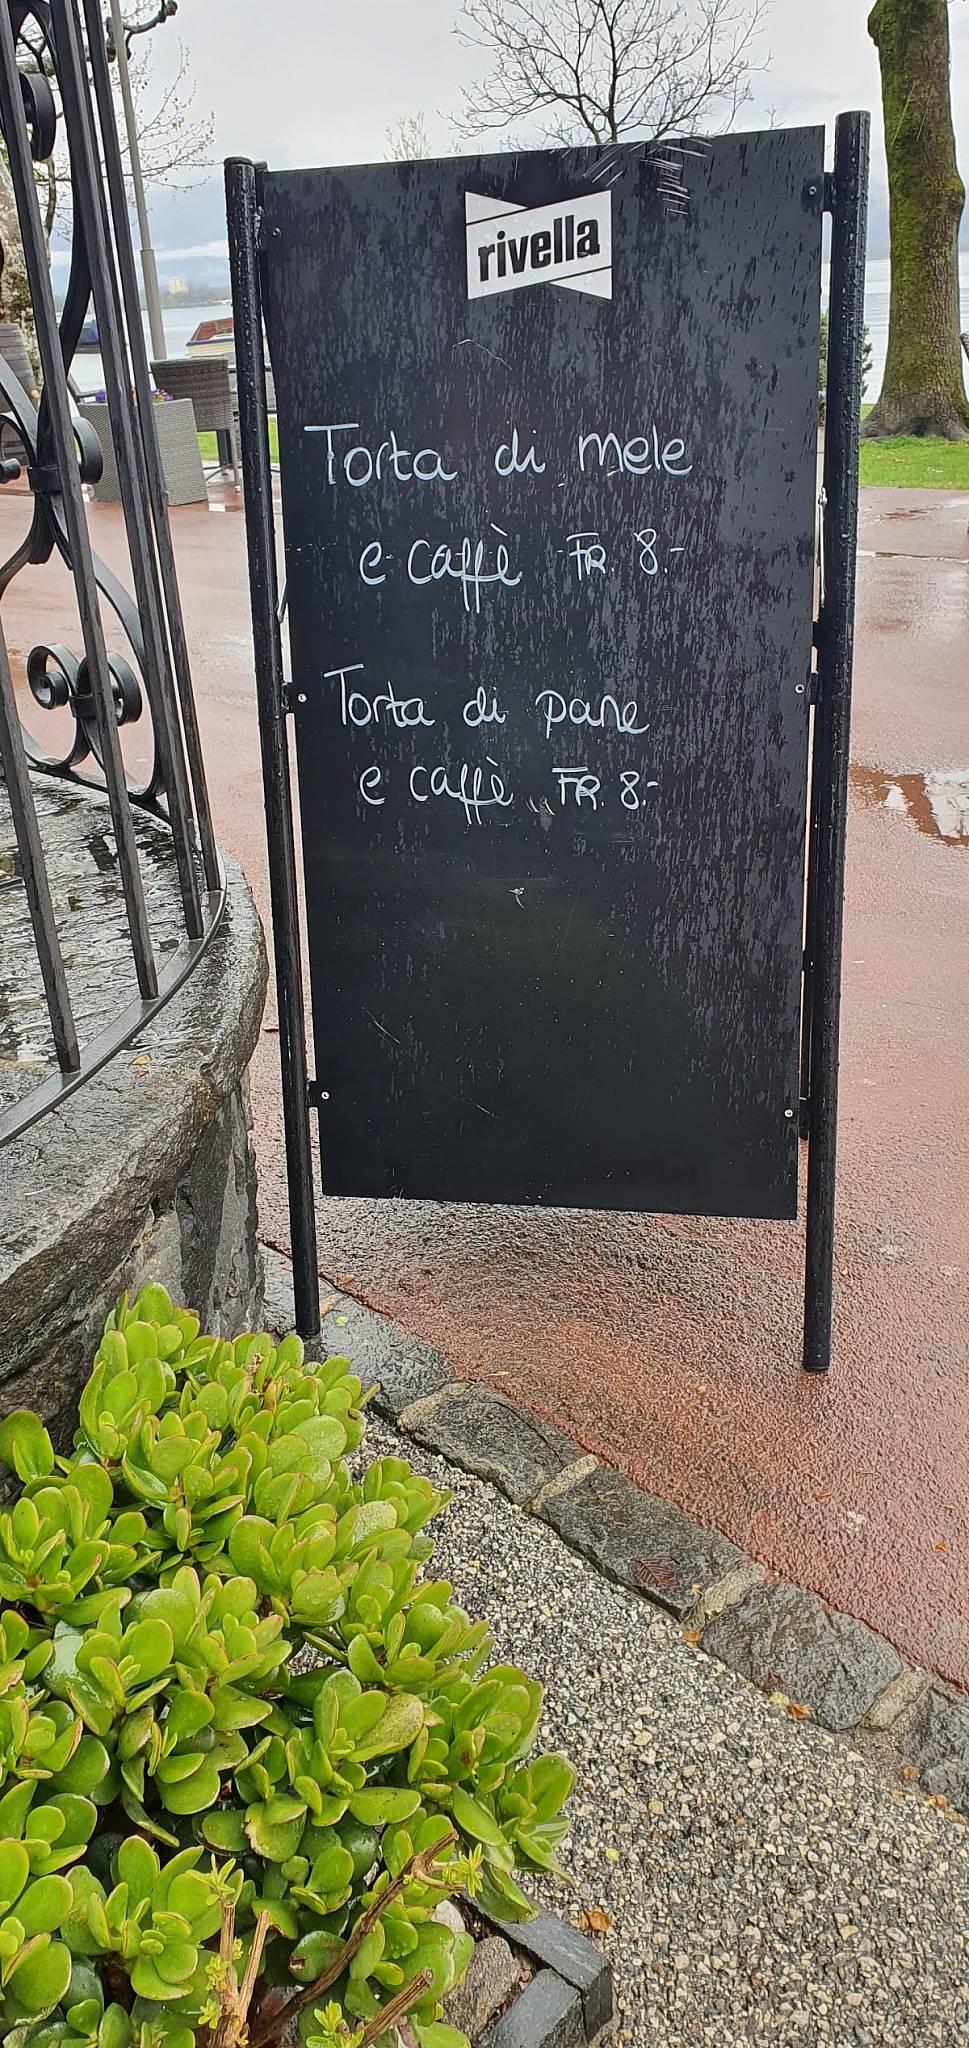 rivella
Torta di mele
e caffè FR. 8.-
Torta di pane
e caffè FR. 8.-